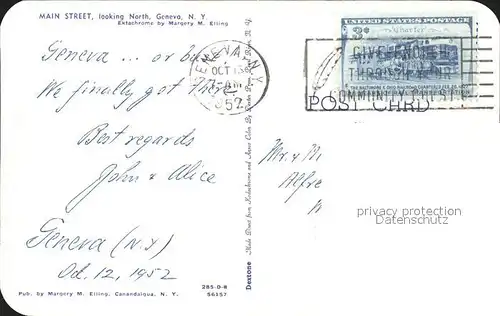 MAIN STREET, looking North, Geneva, N. Y.
Ektachrome by Margery M. Elling
Geneva ... or bust
We finally got there
Best regards
John & Alice
Geneva (N.Y.)
Oct. 12, 1952
Pub. by Margery M. Elling, Canandaigua, N. Y.
285-D-8
S6157
Dextone
Made Direct from Kodachrome and Ansco Color
GENEVA, N.Y.
OCT 13
1952
UNITED STATES POSTAGE
3¢
Charter
THE BALTIMORE & OHIO RAILROAD CHARTERED FEB. 28, 1827
GIVE ENOUGH
THROUGH YOUR
COMMUNITY CHEST
POST CARD
Mr. & M
Alfre
privacy protection
DATENSCHUTZ